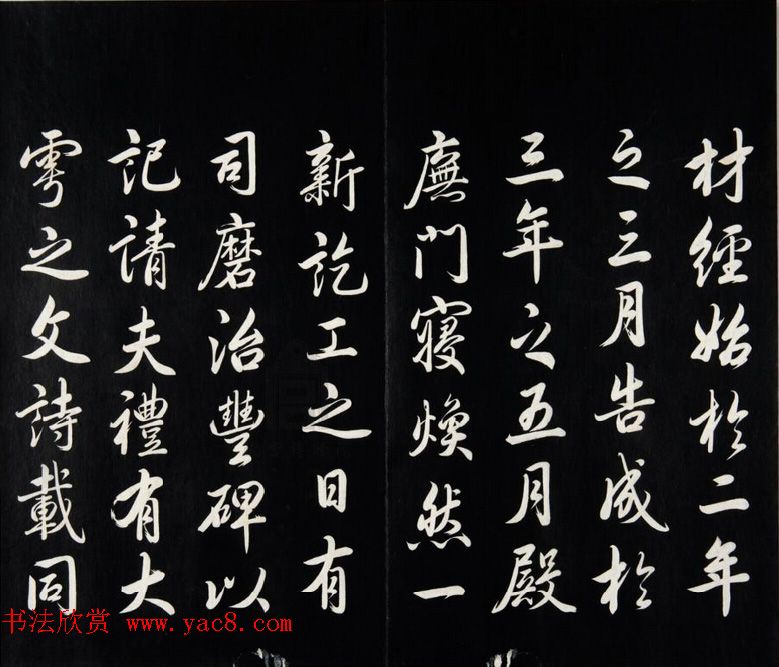 材經始於二年
之三月告成於
三年之五月殿
廡門寢煥然一
新訖工之日有
司磨治豐碑以
記請夫禮有大
雩之文詩載同
书法欣赏 www.yac8.com